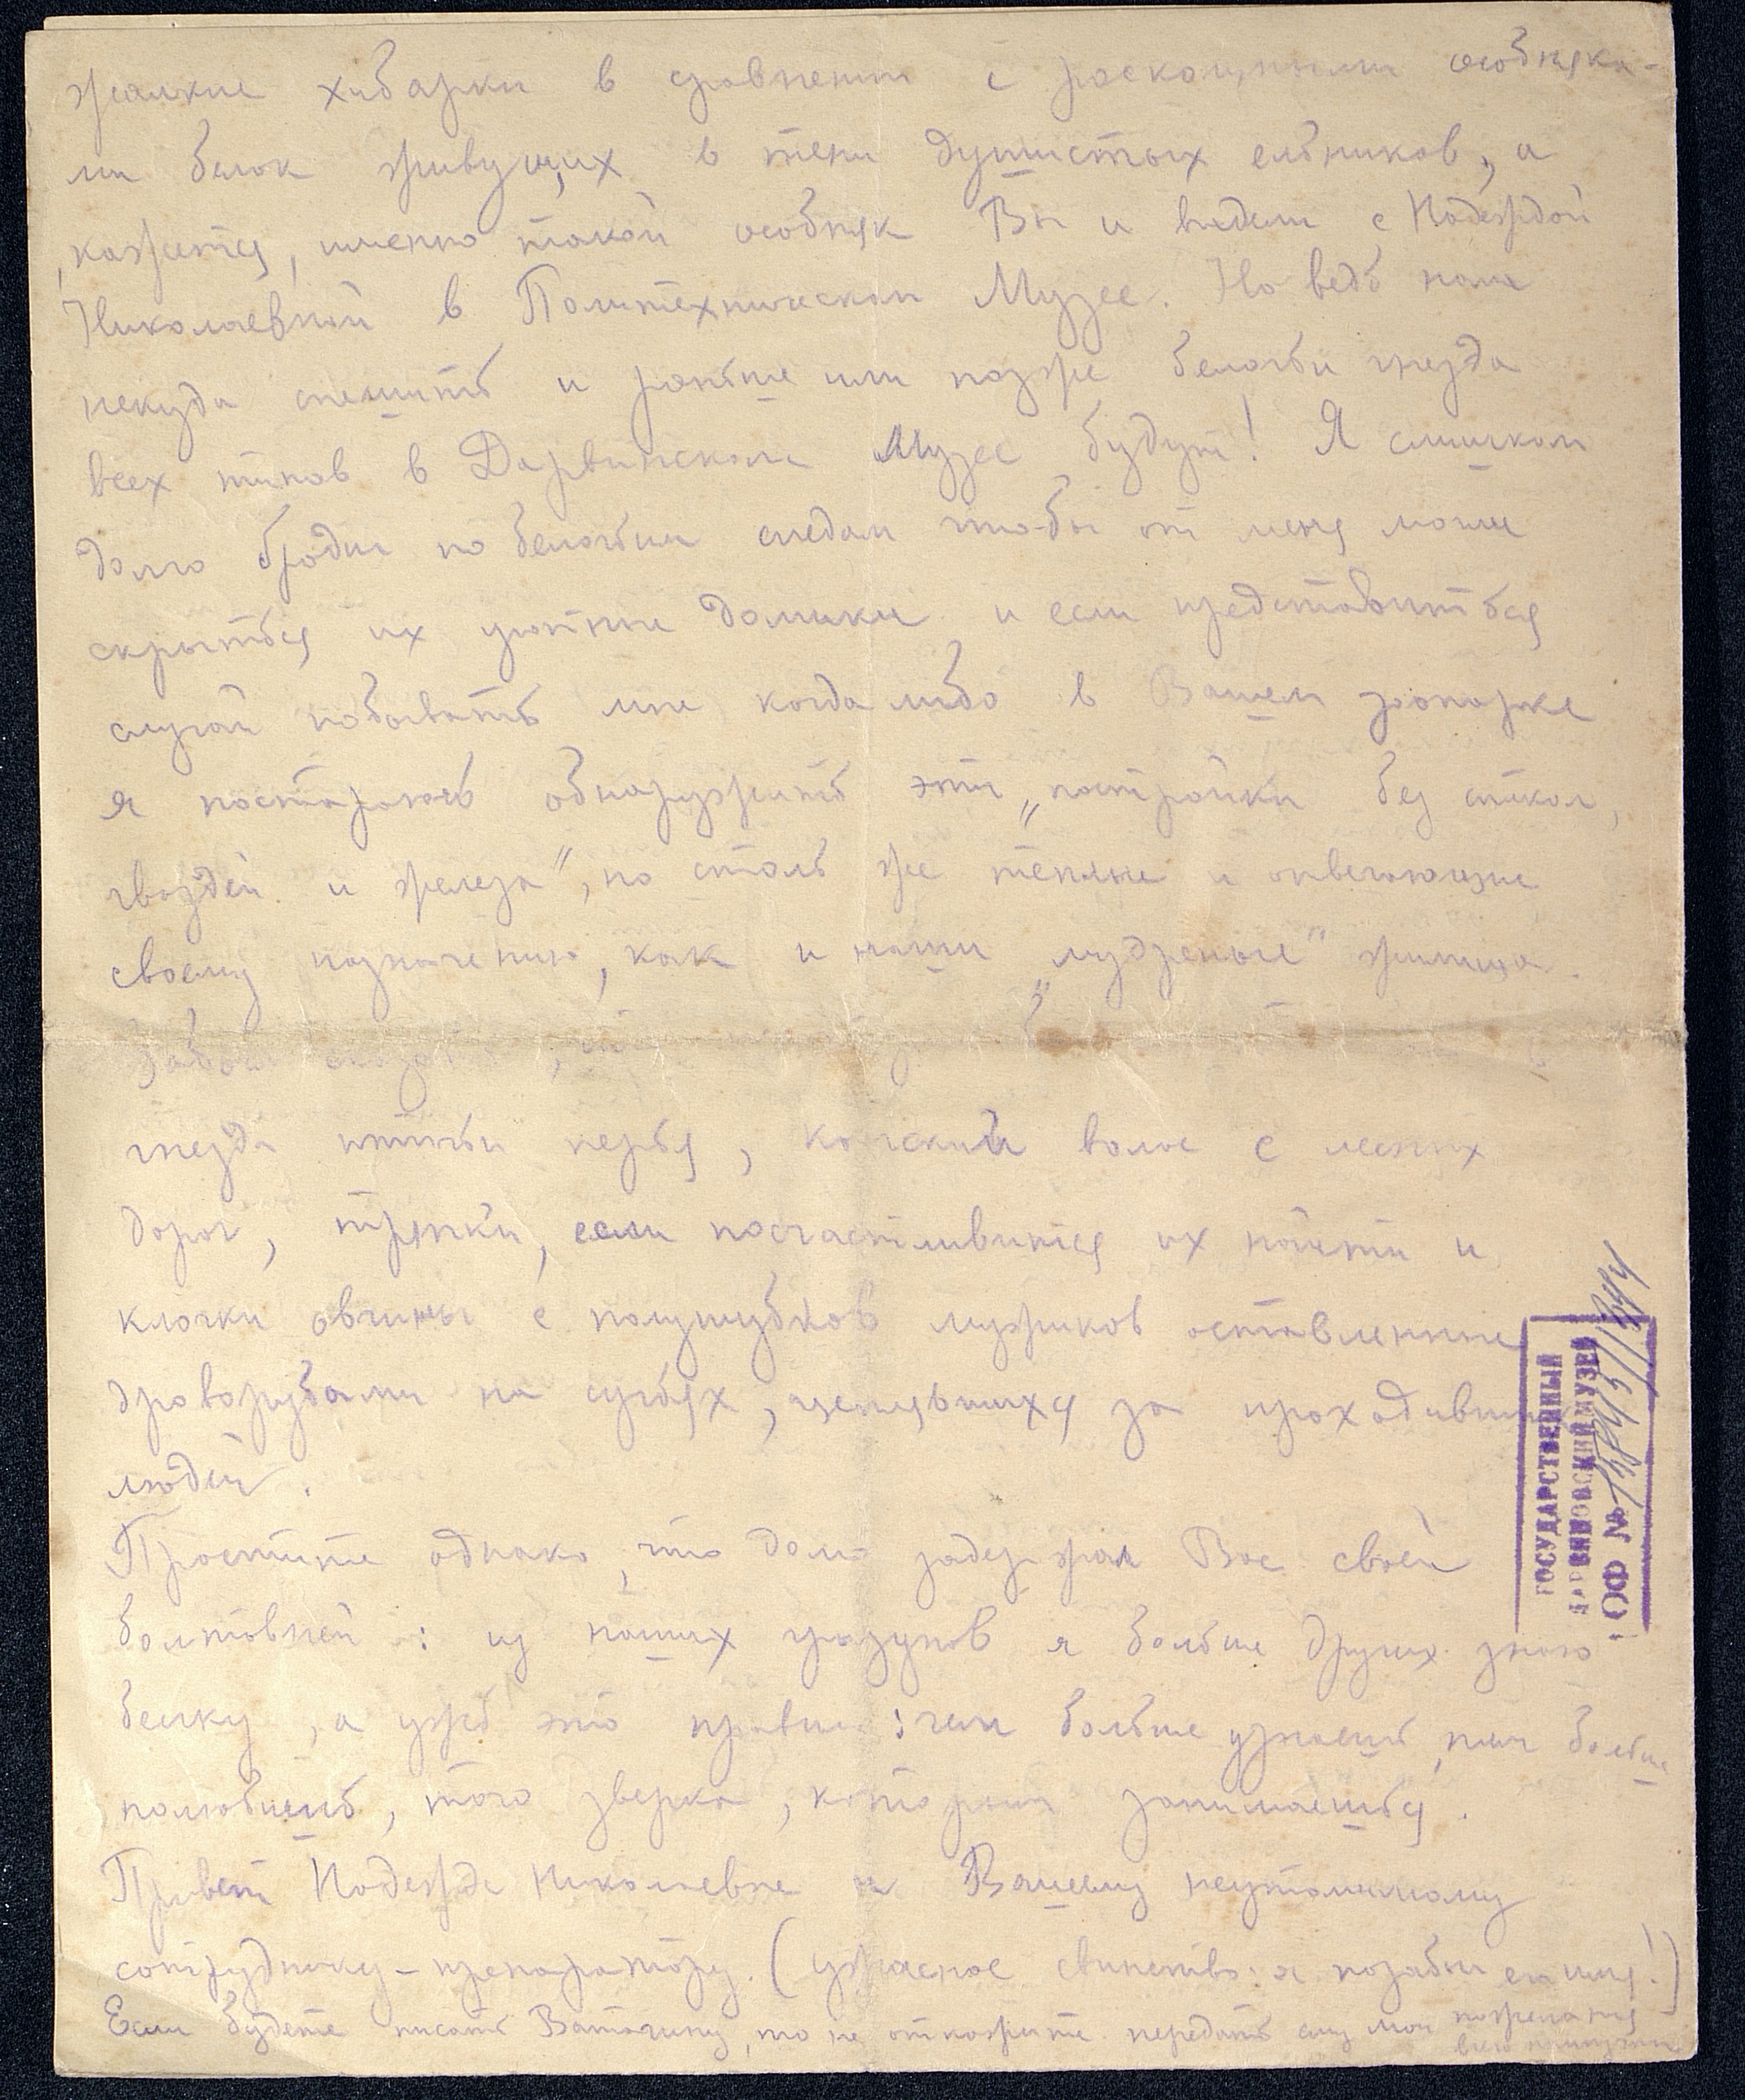 жалкие хибарки в сравнении с роскошными особняка-
ми белок живущих в тени душистых ельников, а
кажется, именно такой особняк Вы и видели с Надеждой
Николаевной в Политехническом Музее. Но ведь нам
некуда спешить и раньше или позже беличьи гнезда
всех типов в Дарвинском Музее будут! Я слишком
долго бродил по беличьим следам что-бы от меня могли
скрыться их уютные домики и если представиться
случай побывать мне когда либо в Вашем зоопарке
я постараюсь обнаружить эти „постройки без стекол,
гвоздей и железа", но столь же теплые и отвечающие
своему назначению, как и наши „мудреные" жилища.
Забыл сказать, что
гнезда птичьи перья, конский волос с лесных
дорог, тряпки, если посчастливится их найти и
клочки овчины с полушубков мужиков оставленные
дроворубами на сучьях, цеплявшихся за проходивших
людей.
Простите однако, что долго задержал Вас своей
болтовней: из наших грызунов я больше других знаю
белку, а уж это правило: чем больше узнаешь, тем больше
полюбишь, того зверка, которым занимаешься.
Привет Надежде Николаевне и Вашему неутомимому
сотруднику-препаратору. (ужасное свинство: я позабыл его имя!)
Если будете писать Ватагину, то не откажите передать ему мои пожелания
всего
ГОСУДАРСТВЕННЫЙ
ДАРВИНОВСКИЙ МУЗЕЙ
ОФ №